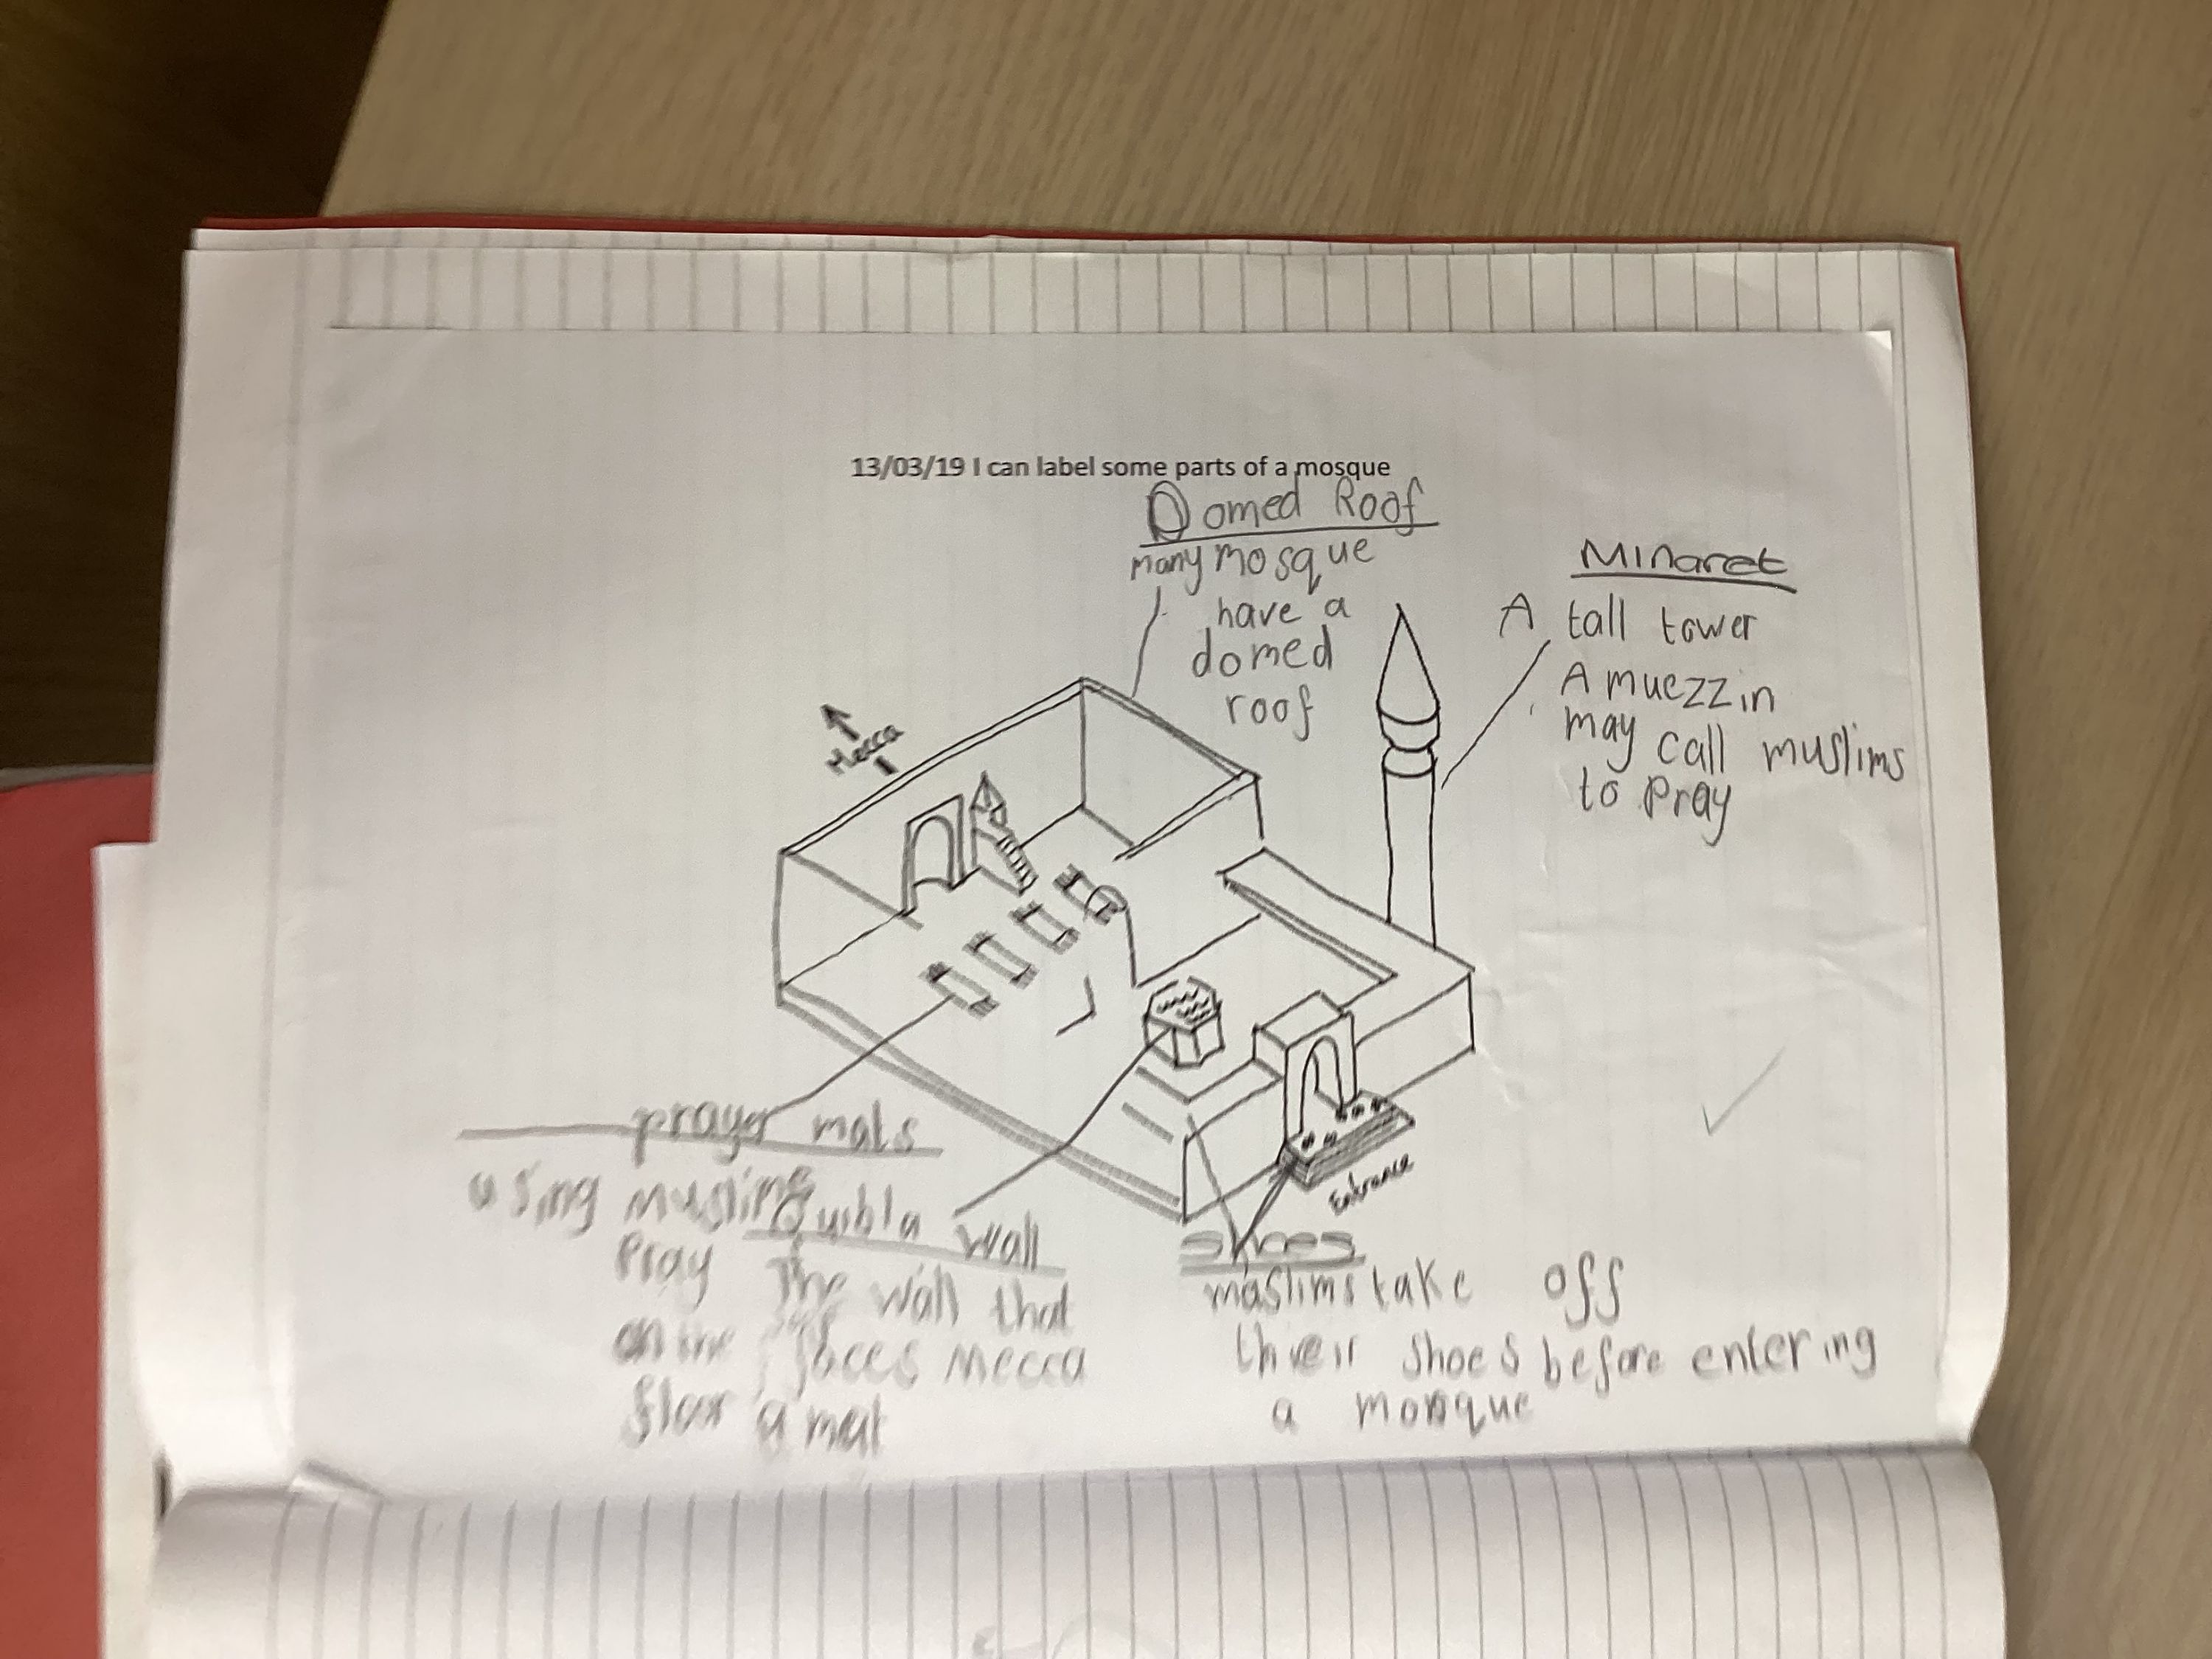 13/03/19 I can label some parts of a mosque
Domed Roof
many mosque
have a
domed
roof
Minaret
A tall tower
A muezzin
may call muslims
to pray
Mecca
Entrance
prayer mats
using muslims
pray
on the
floor a mat
Quibla wall
The wall that
faces Mecca
shoes
maslims take off
thveir shoes before entering
a mosque